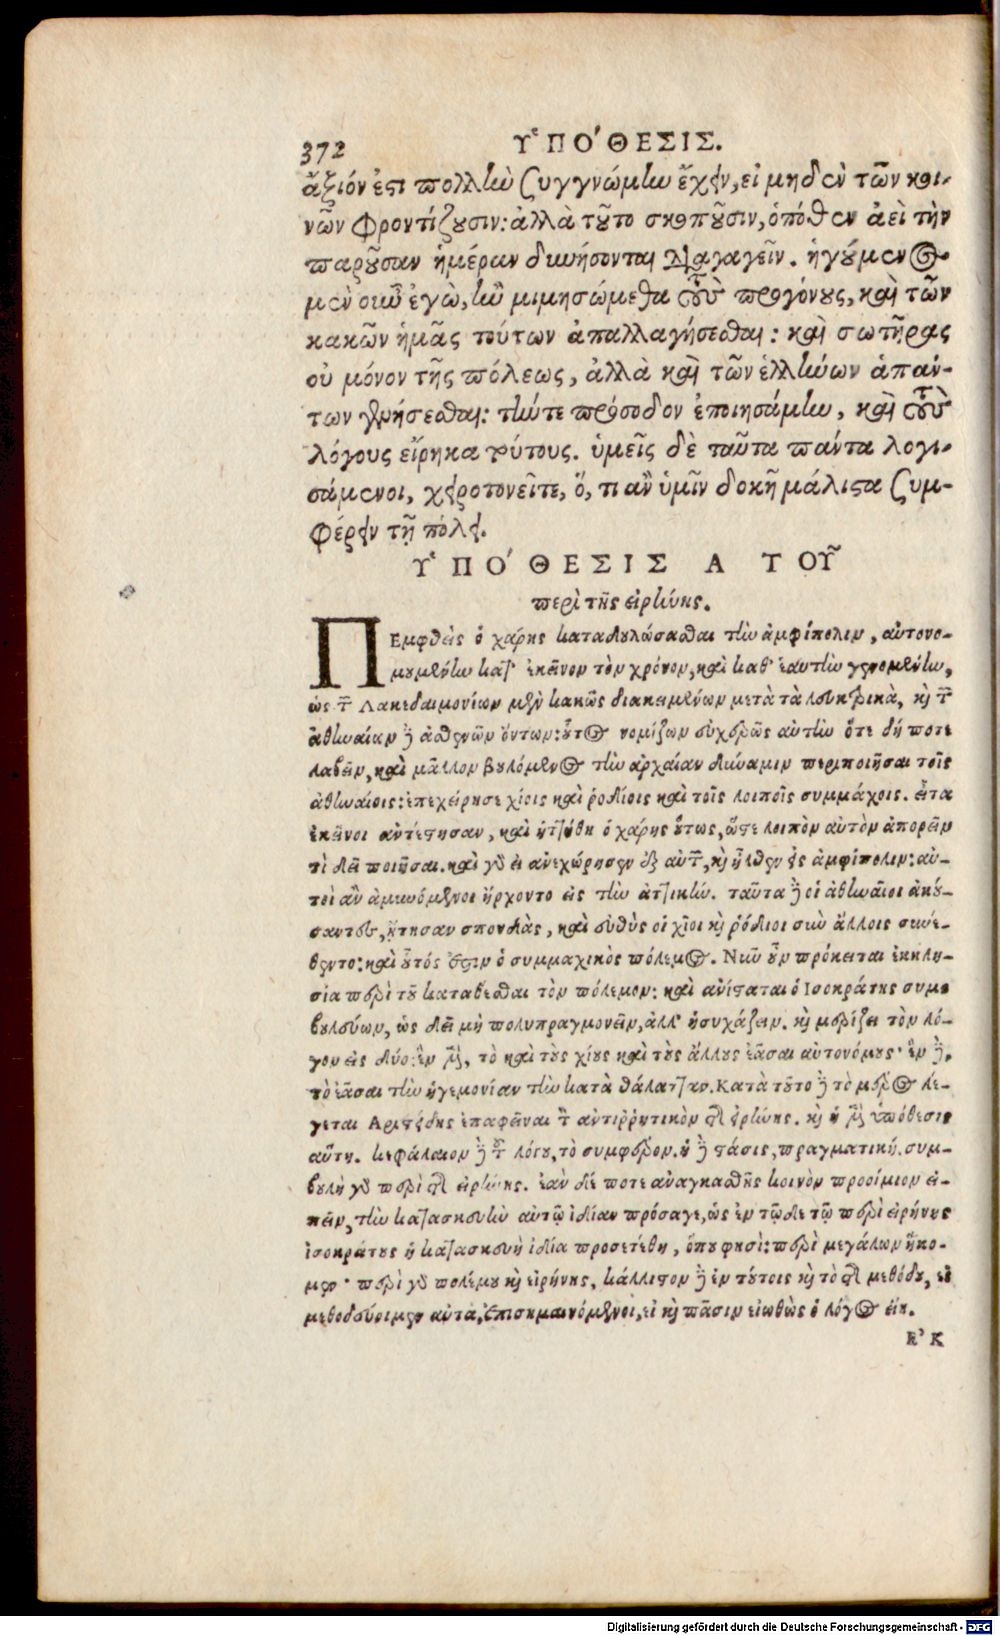 372 ὙΠΟ´ΘΕΣΙΣ.
ἄξιόν ἐστι πολλὴν συγγνώμην ἔχειν, εἰ μηδὲν τῶν κοι-
νῶν φροντίζουσιν: ἀλλὰ τοῦτο σκοποῦσιν, ὁπόθεν ἀεὶ τὴν
παροῦσαν ἡμέραν δυνήσονται διαγαγεῖν. ἡγούμενος
μὲν οὖν ἐγὼ, ἢν μιμησώμεθα τοὺς προγόνους, καὶ τῶν
κακῶν ἡμᾶς τούτων ἀπαλλαγήσεσθαι: καὶ σωτῆρας
οὐ μόνον τῆς πόλεως, ἀλλὰ καὶ τῶν ἑλλήνων ἁπάν-
των γενήσεσθαι: τήν τε πρόσοδον ἐποιησάμην, καὶ τοὺς
λόγους εἴρηκα τούτους. ὑμεῖς δὲ ταῦτα πάντα λογι-
σάμενοι, χειροτονεῖτε, ὅ, τι ἂν ὑμῖν δοκῇ μάλιστα συμ-
φέρειν τῇ πόλει.
ὙΠΟ´ΘΕΣΙΣ Α ΤΟΥ͂
περὶ τῆς εἰρήνης.
ΠΕμφθεὶς ὁ χάρης καταδουλώσασθαι τὴν ἀμφίπολιν, αὐτονο-
μουμένην κατ' ἐκεῖνον τὸν χρόνον, καὶ καθ' ἑαυτὴν γενομένην,
ὡς τῶν Λακεδαιμονίων μὲν κακῶς διακειμένων μετὰ τὰ λευκτρικὰ, καὶ τῶν
ἀθηναίων δὲ ἀσθενῶν ὄντων: οὗτος νομίζων εὐχερῶς αὐτὴν ὅτε δή ποτε
λαβεῖν, καὶ μᾶλλον βουλόμενος τὴν ἀρχαίαν δύναμιν περιποιῆσαι τοῖς
ἀθηναίοις: ἐπεχείρησε χίοις καὶ ῥοδίοις καὶ τοῖς λοιποῖς συμμάχοις. εἶτα
ἐκεῖνοι ἀντέστησαν, καὶ ἡττήθη ὁ χάρης οὕτως, ὥστε λοιπὸν αὐτὸν ἀπορεῖν
τὶ δεῖ ποιῆσαι. καὶ γὰρ εἰ ἀνεχώρησεν ἐξ αὐτῶν, καὶ ἦλθεν εἰς ἀμφίπολιν: αὐ-
τοὶ ἂν ἀμυνόμενοι ἤρχοντο εἰς τὴν ἀττικήν. ταῦτα δὲ οἱ ἀθηναῖοι ἀκού-
σαντες, ᾔτησαν σπονδὰς, καὶ εὐθὺς οἱ χῖοι καὶ ῥόδιοι σὺν ἄλλοις συνέ-
θεντο: καὶ οὗτός ἐστιν ὁ συμμαχικὸς πόλεμος. Νῦν οὖν πρόκειται ἐκκλη-
σία περὶ τοῦ καταθέσθαι τὸν πόλεμον: καὶ ἀνίσταται ὁ Ισοκράτης συμ-
βουλεύων, ὡς δεῖ μὴ πολυπραγμονεῖν, ἀλλ' ἡσυχάζειν. καὶ μερίζει τὸν λό-
γον εἰς δύο: ἓν μὲν, τὸ καὶ τοὺς χίους καὶ τοὺς ἄλλους ἐᾶσαι αὐτονόμους· ἓν δὲ,
τὸ ἐᾶσαι τὴν ἡγεμονίαν τὴν κατὰ θάλατταν. Κατὰ τοῦτο δὲ τὸ μέρος λέ-
γεται Αριστείδης ἐπαφεῖναι τὸν ἀντιῤῥητικὸν τῆς εἰρήνης. καὶ ἡ μὲν ὑπόθεσις
αὕτη. κεφάλαιον δὲ τοῦ λόγου, τὸ συμφέρον. ἡ δὲ στάσις, πραγματική. συμ-
βουλὴ γὰρ περὶ τῆς εἰρήνης. ἐὰν δέ ποτε ἀναγκασθῇς κοινὸν προοίμιον εἰ-
πεῖν, τὴν κατασκευὴν αὐτῷ ἰδίαν πρόσαγε, ὡς ἐν τῷδε τῷ περὶ εἰρήνης
ἰσοκράτους ἡ κατασκευὴ ἰδία προσετέθη, ὅπου φησὶ: περὶ μεγάλων ἥκο-
μεν· περὶ γὰρ πολέμου καὶ εἰρήνης. κάλλιστον δὲ ἐν τούτοις καὶ τὸ τῆς μεθόδου, εἰ
μεθοδεύοιμεν αὐτὰ, ἐπισημαινόμενοι, εἰ καὶ πᾶσιν εἰωθὼς ὁ λόγος εἴη.
Ε᾿Κ
Digitalisierung gefördert durch die Deutsche Forschungsgemeinschaft - DFG